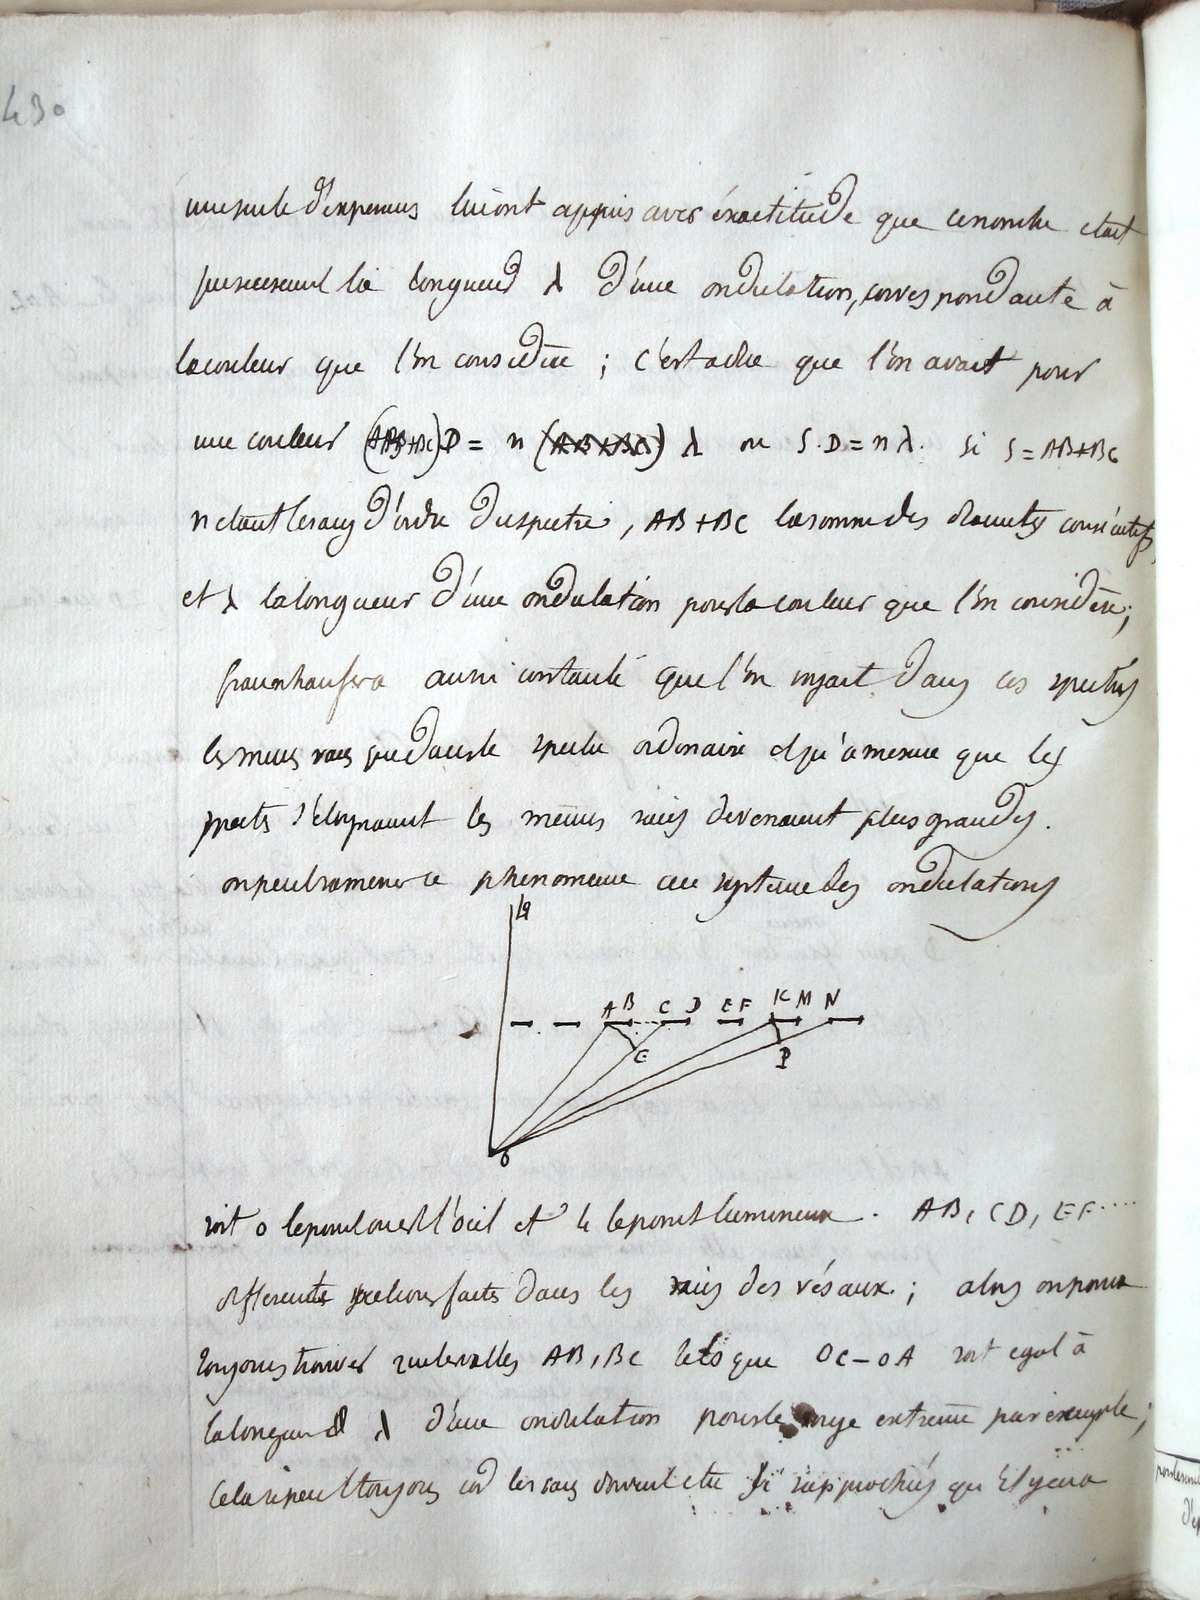 430
une suite d'experiences lui ont appris avec éxactitude que ce nombre etait
précisement la longueur λ d'une ondulation, correspondante à
la couleur que l'on considère ; c'est a dire que l'on avait pour
une couleur (AB+BC) D = n (AB+BC) λ ou S.D = n λ. si S = AB+BC
n etant le rang d'ordre du spectre, AB+BC la somme des consécutifs,
et λ la longueur d'une ondulation pour la couleur que l'on considère ;
fraunhauffer a aussi constaté que l'on voyait dans ces spectres
les memes raies que dans le spectre ordinaire et qu'a mesure que les
spectres s'éloignaient les mêmes raies devenaient plus grandes.
on peut ramener ce phenomene au systeme des ondulations
L
A B C D E F K M N
G P
O
soit o le point ou est l'oeil et L le point lumineux. AB, CD, EF....
differentes faites dans les raies des réseaux ; alors on pourra
toujours trouver intervalles AB, BC tels que OC – OA soit egal à
la longueur λ d'une ondulation pour le rouge extreme par exemple ;
cela se peut toujours car les raies doivent etre si rapprochées qu'il y aura